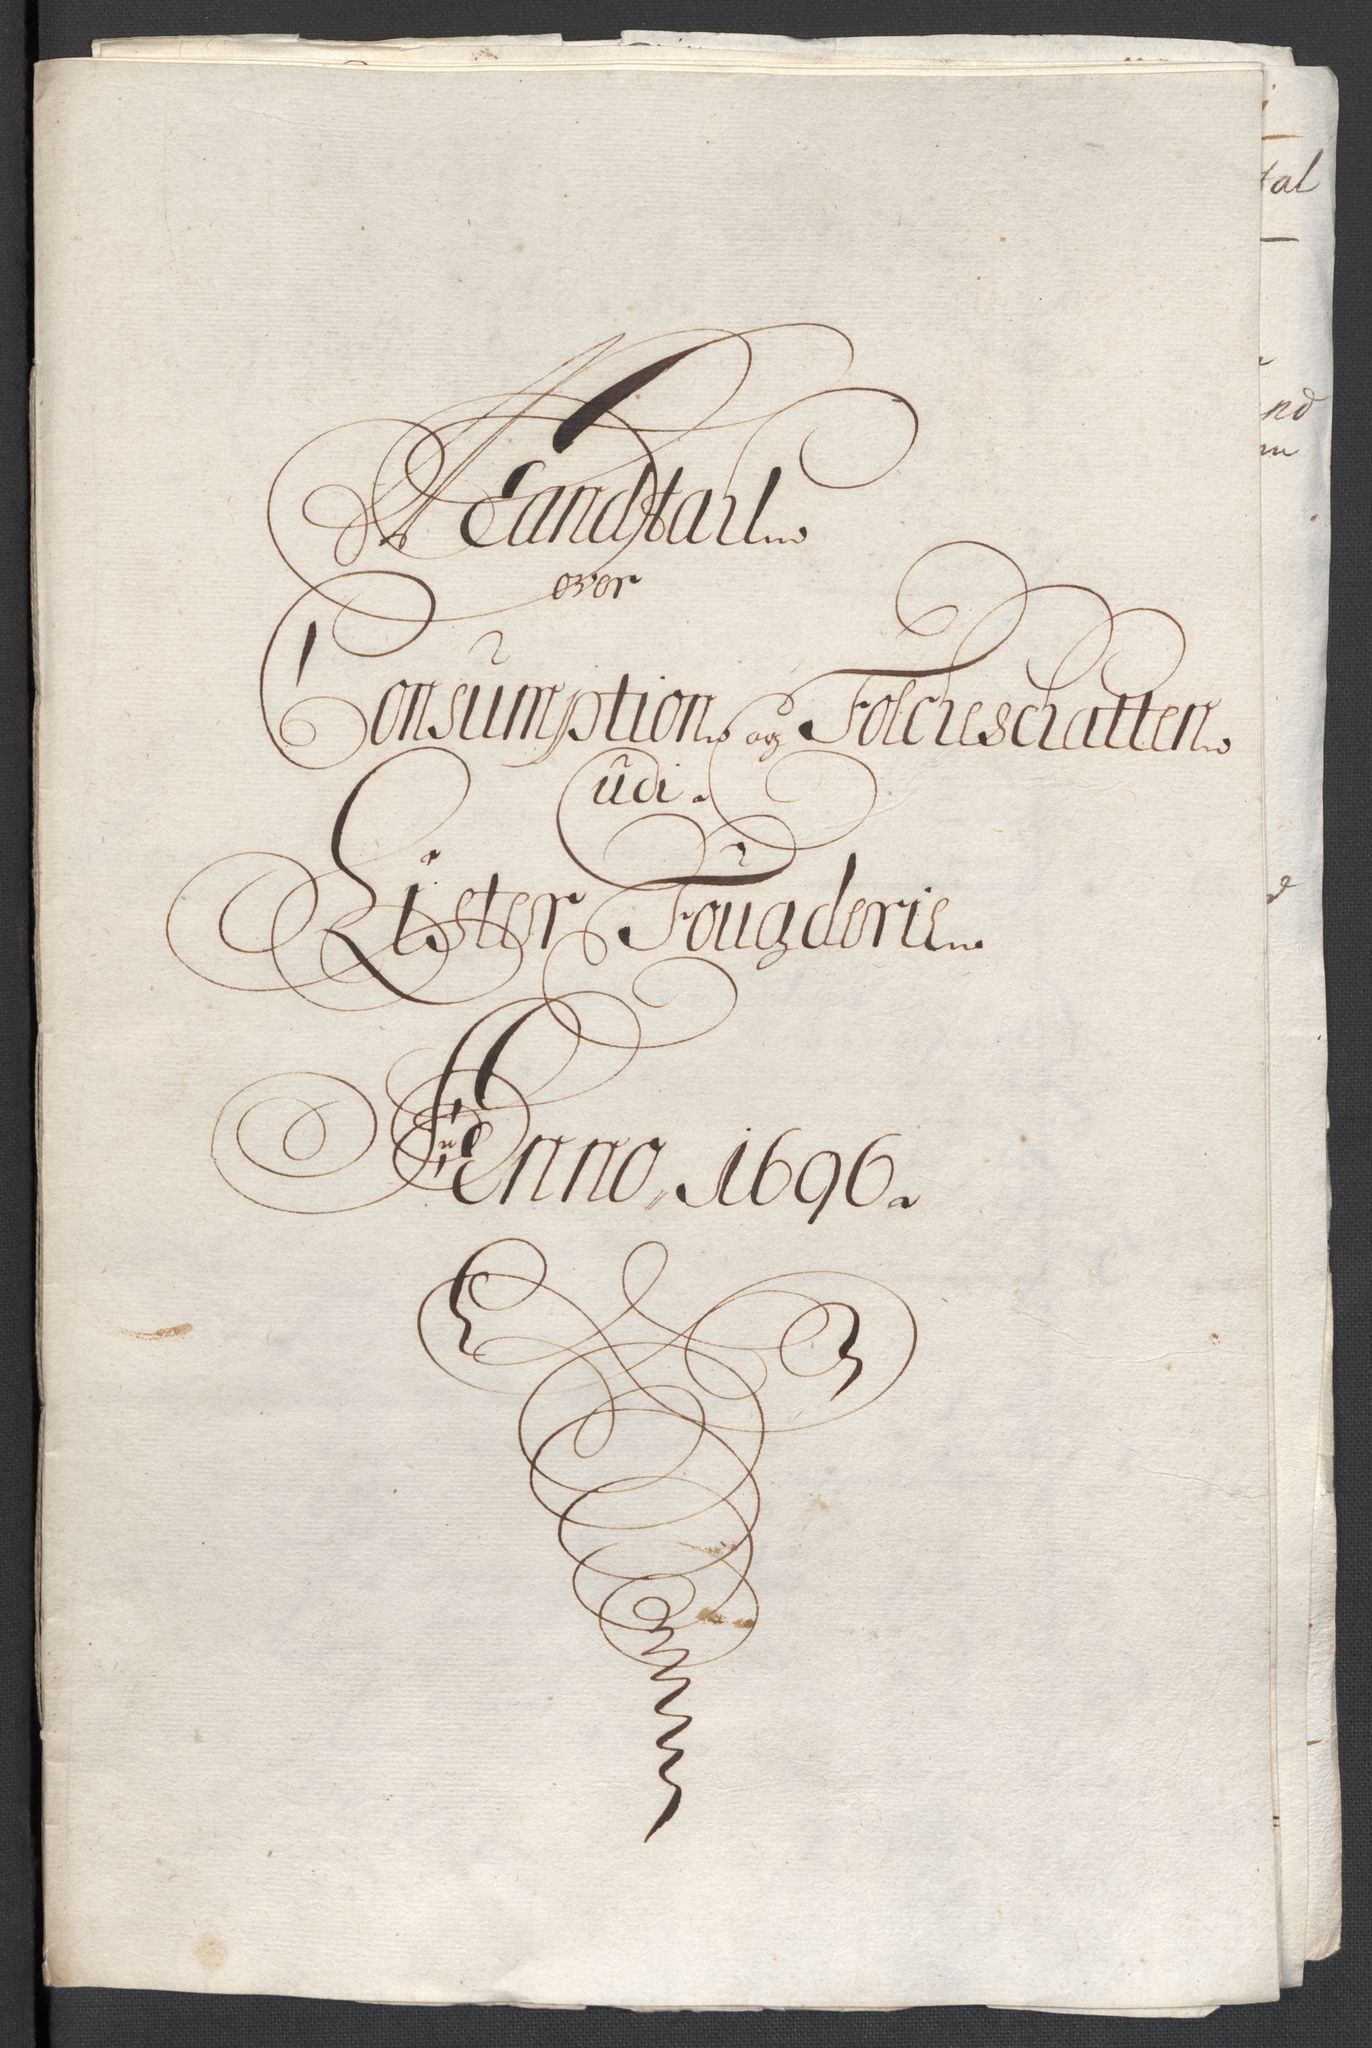 Mandtall
over
Consumption og Folcheschatten
udi
Lister Fougderie
Anno 1696
tal
nd